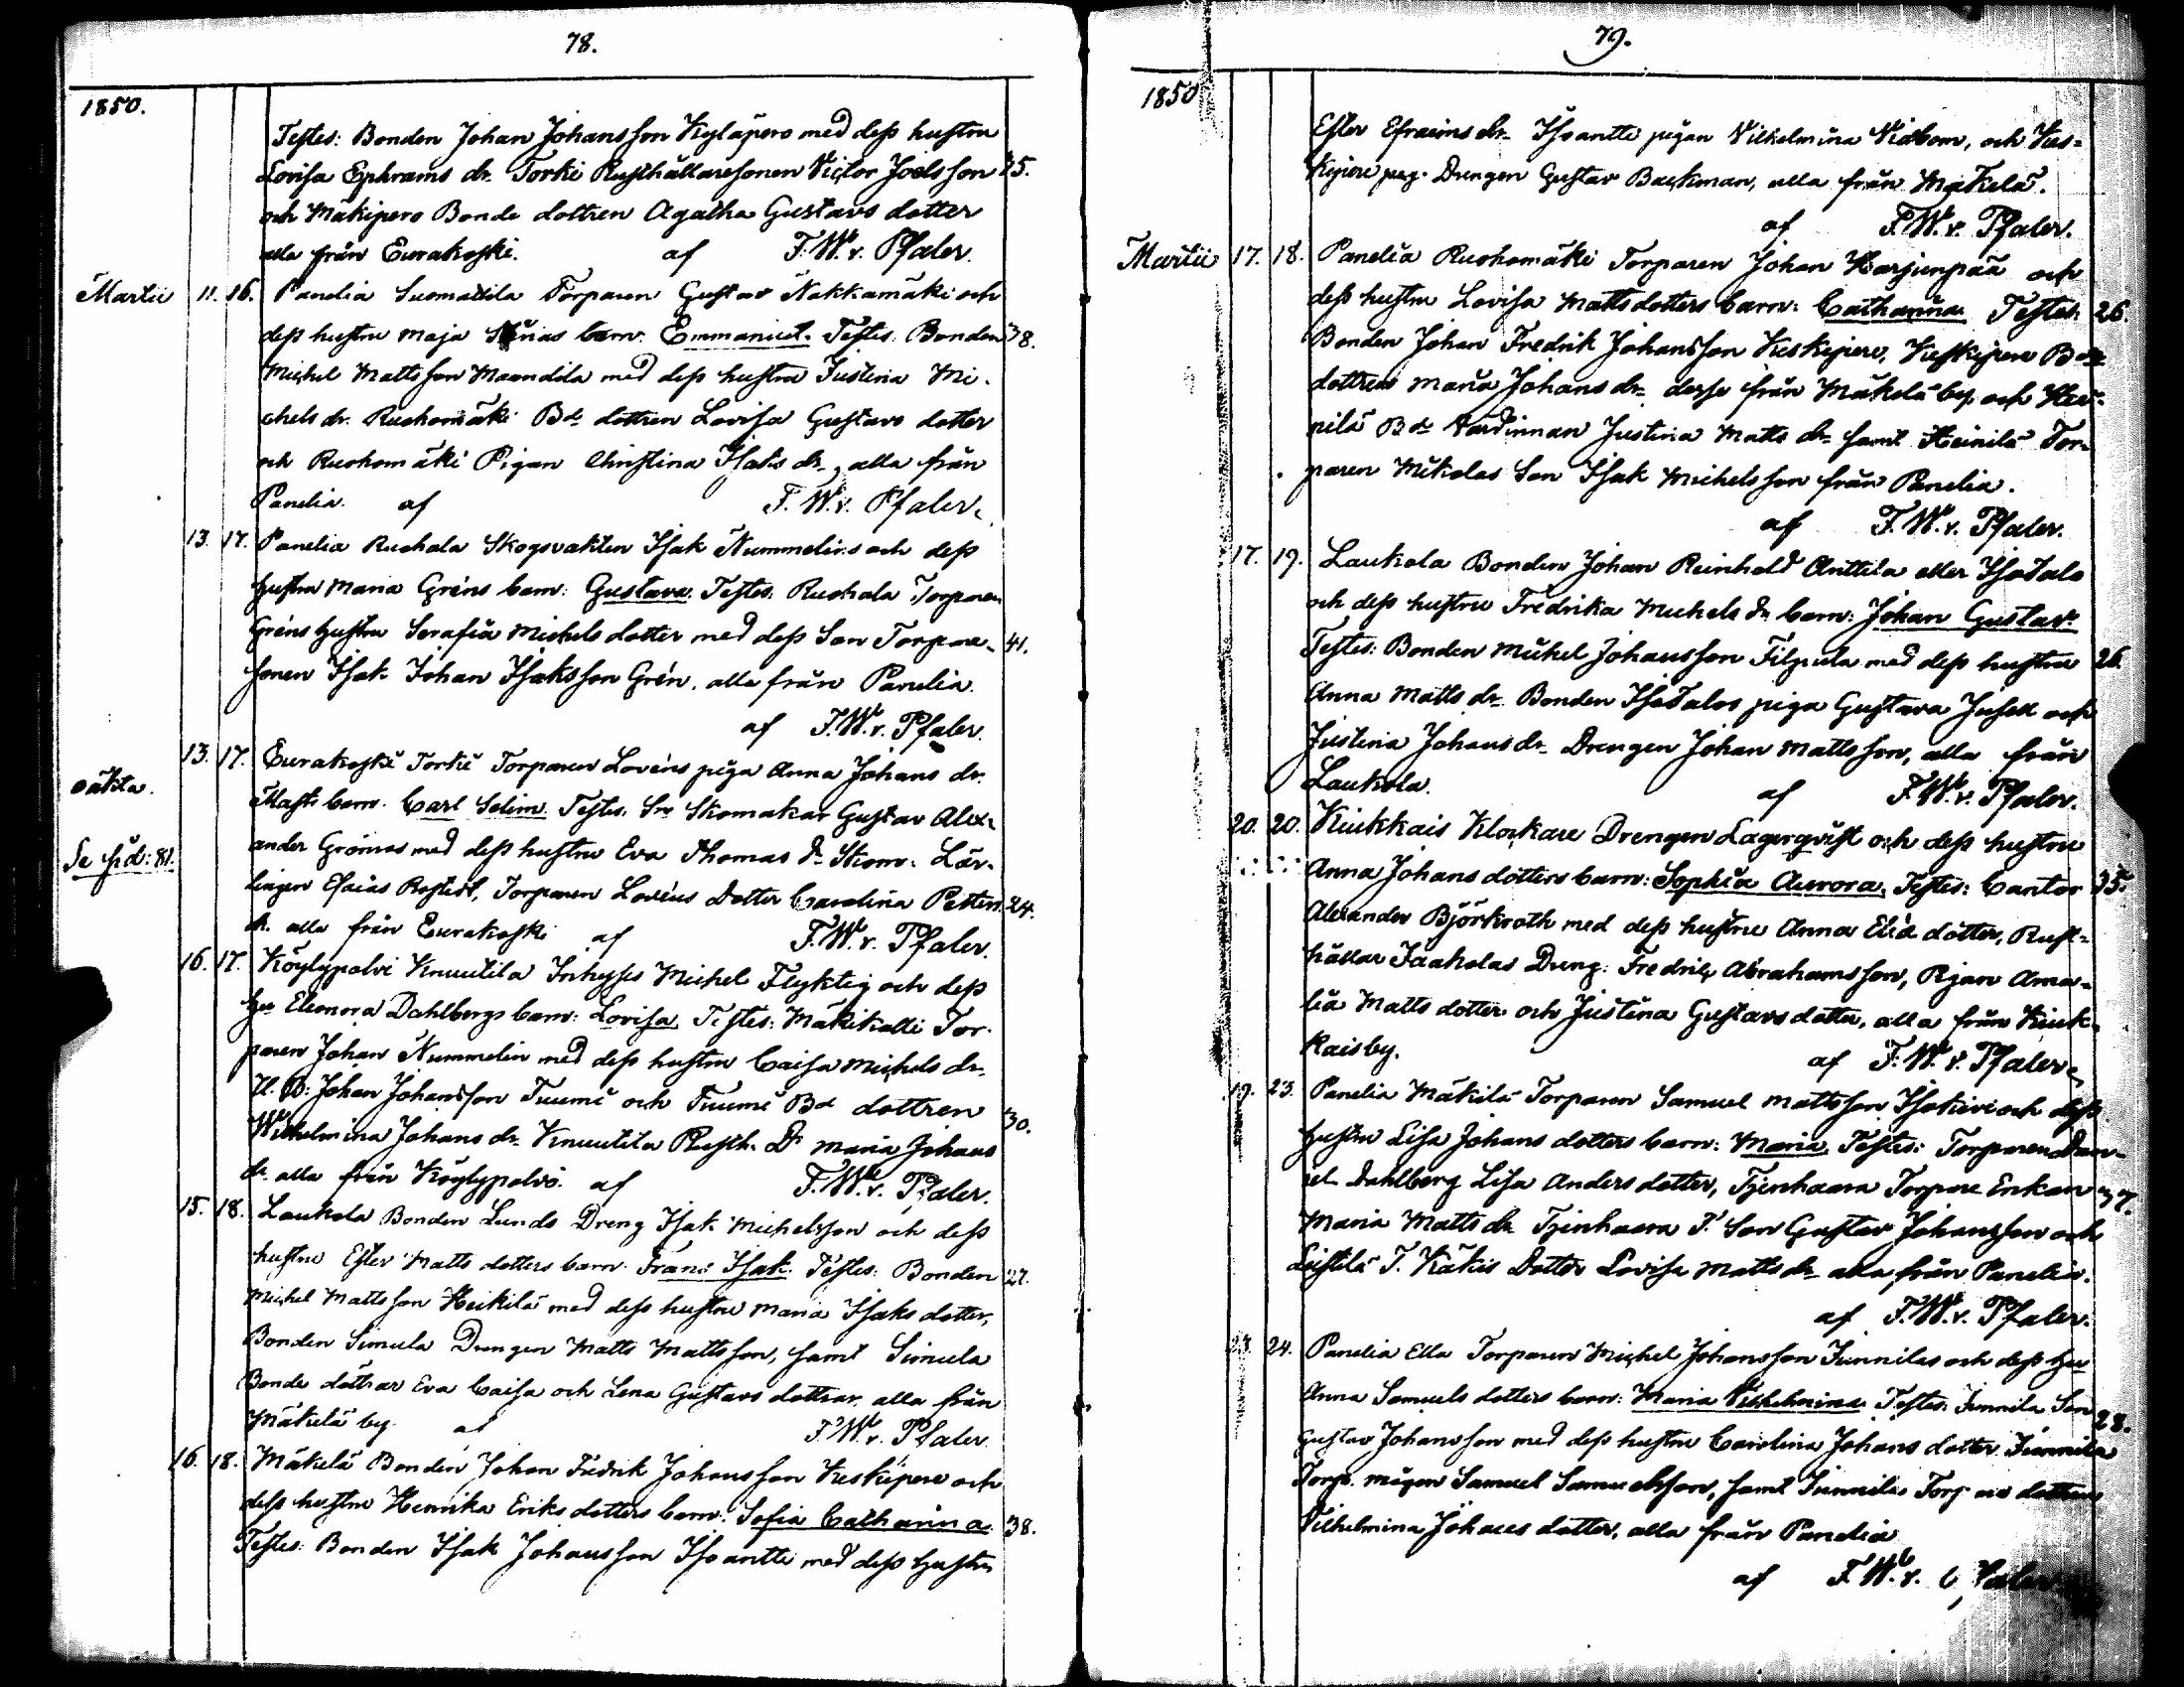 78.
1850.
Testes: Bonden Johan Johansson Kyläpero med dess hustru
Lovisa Ephrams dr. Torki Rusthållaresonen Victor Joelsson 25.
och Mäkipero Bonde dottren Agatha Gustavs dotter
alla från Eurakoski. af F. W. v. Pfaler.
Martii 11. 16. Panelia Suomattila Torparen Gustav Nakkamäki och
dess hustru Maja Stinas barn: Emmanuel. Testes: Bonden 38.
Michel Mattsson Maandila med dess hustru Justina Mi-
chels dr. Ruohomäki Bde dottren Lovisa Gustavs dotter
och Ruohomäki Pigan Christina Isaks dr, alla från
Panelia. af F. W. v. Pfaler.
13. 17. Panelia Ruohala Skogsvakten Isak Nummelins och dess
hustru Maria Gréns barn: Gustava. Testes: Ruohala Torparen
Gréns hustru Serafia Michels dotter med dess Son Torpare- 41.
sonen Isak Johan Isaksson Grén, alla från Panelia.
af F. W. v. Pfaler.
13. 17. Eurakoski Torki Torparen Lovéns piga Anna Johans dr.
oäkta. barn. Carl Selim. Testes: Skomakar Gustav Alex-
Se sid: 81. ander Grönroos med dess hustru Eva Thomas dr. Skom: Lär-
lingen Esaias Rostedt, Torparen Lovéns Dotter Carolina Petters 24.
dr. alla från Eurakoski af F. W. v. Pfaler.
16. 17. Köylypolvi Knuutila Inhyses Michel Flyktig och dess
hu Eleonora Dahlbergs barn: Lovisa. Testes: Mäkikalli Tor-
paren Johan Nummelin med dess hustru Caisa Michels dr.
U. B: Johan Johansson Tuumi och Tuumi Bd dottren 30.
Wilhelmina Johans dr. Knuutila Rusth. Dr Maria Johans
dr. alla från Köylypolvi. af F. W. v. Pfaler.
15. 18. Laukola Bonden Lunds Dreng Isak Michelsson och dess
hustru Ester Matts dotters barn: Frans Isak. Testes: Bonden 27.
Michel Mattsson Heikilä med dess hustru Maria Isaks dotter,
Bonden Simula Drengen Matts Mattsson, samt Simula
Bonde döttrar Eva Caisa och Lena Gustavs döttrar, alla från
Mäkelä by. af F. W. v. Pfaler.
16. 18. Mäkelä Bonden Johan Fredrik Johansson Kieskipere och
dess hustru Henrika Eriks dotters barn: Sofia Catharina. 38.
Testes: Bonden Isak Johansson Isoantti med dess hustru
79.
1850
Ester Efraims dr. Isoantti pigan Vilhelmina Vidbom, och Kies-
kipere Drengen Gustav Backman, alla från Mäkelä.
af F. W. v. Pfaler.
Martii 17. 18. Panelia Ruohomäki Torparen Johan Harjunpää och
dess hustru Lovisa Mattsdotters barn: Catharina. Testes: 26.
Bonden Johan Fredrik Johansson Kieskipere, Kieskipere Bde
dottren Maria Johans dr. desse från Mäkelä by, och Hei-
nilä Bde Värdinnan Justina Matts dr. samt Heinilä Tor-
paren Mikolas Son Isak Michelsson från Panelia.
af F. W. v. Pfaler.
17. 19. Laukola Bonden Johan Reinhold Anttila eller Isotalo
och dess hustru Fredrika Michels dr. barn: Johan Gustav.
Testes: Bonden Michel Johansson Filpula med dess hustru 26.
Anna Matts dr. Bonden Isotalos piga Gustava och
Justina Johans dr. Drengen Johan Mattsson, alla från
Laukola. af F. W. v. Pfaler.
20. 20. Kiukkais Klockare Drengen Lagerqvist och dess hustru
Anna Johans dotters barn: Sophia Aurora. Testes: Cantor 35.
Alexander Björkroth med dess hustru Anna Elis dotter, Rust-
hållar Jaakolas Dreng: Fredrik Abrahamsson, Pigan Ama-
lia Matts dotter och Justina Gustavs dotter, alla från Kiuk-
kais by. af F. W. v. Pfaler.
19. 23. Panelia Mäkilä Torparen Samuel Mattsson Isokivi och dess
hustru Lisa Johans dotters barn: Maria. Testes: Torparen Dan-
iel Dahlberg Lisa Anders dotter, Tjenhaara Torpare Enkan 37.
Maria Matts dr. Tjenhaara T. Son Gustav Johansson och
Liistilä T. Käkis Dotter Lovisa Matts dr. alla från Panelia.
af F. W. v. Pfaler.
23. 24. Panelia Ella Torparen Michel Johansson Junnilas och dess hu
Anna Samuels dotters barn: Maria Vilhelmina. Testes: Junnila Son 28.
Gustav Johansson med dess hustru Carolina Johans dotter. Junnila
Torp. mågen Samuel Samuelsson, samt Junnilas Torpare dottren
Vilhelmina Johans dotter, alla från Panelia
af F. W. v. Pfaler.